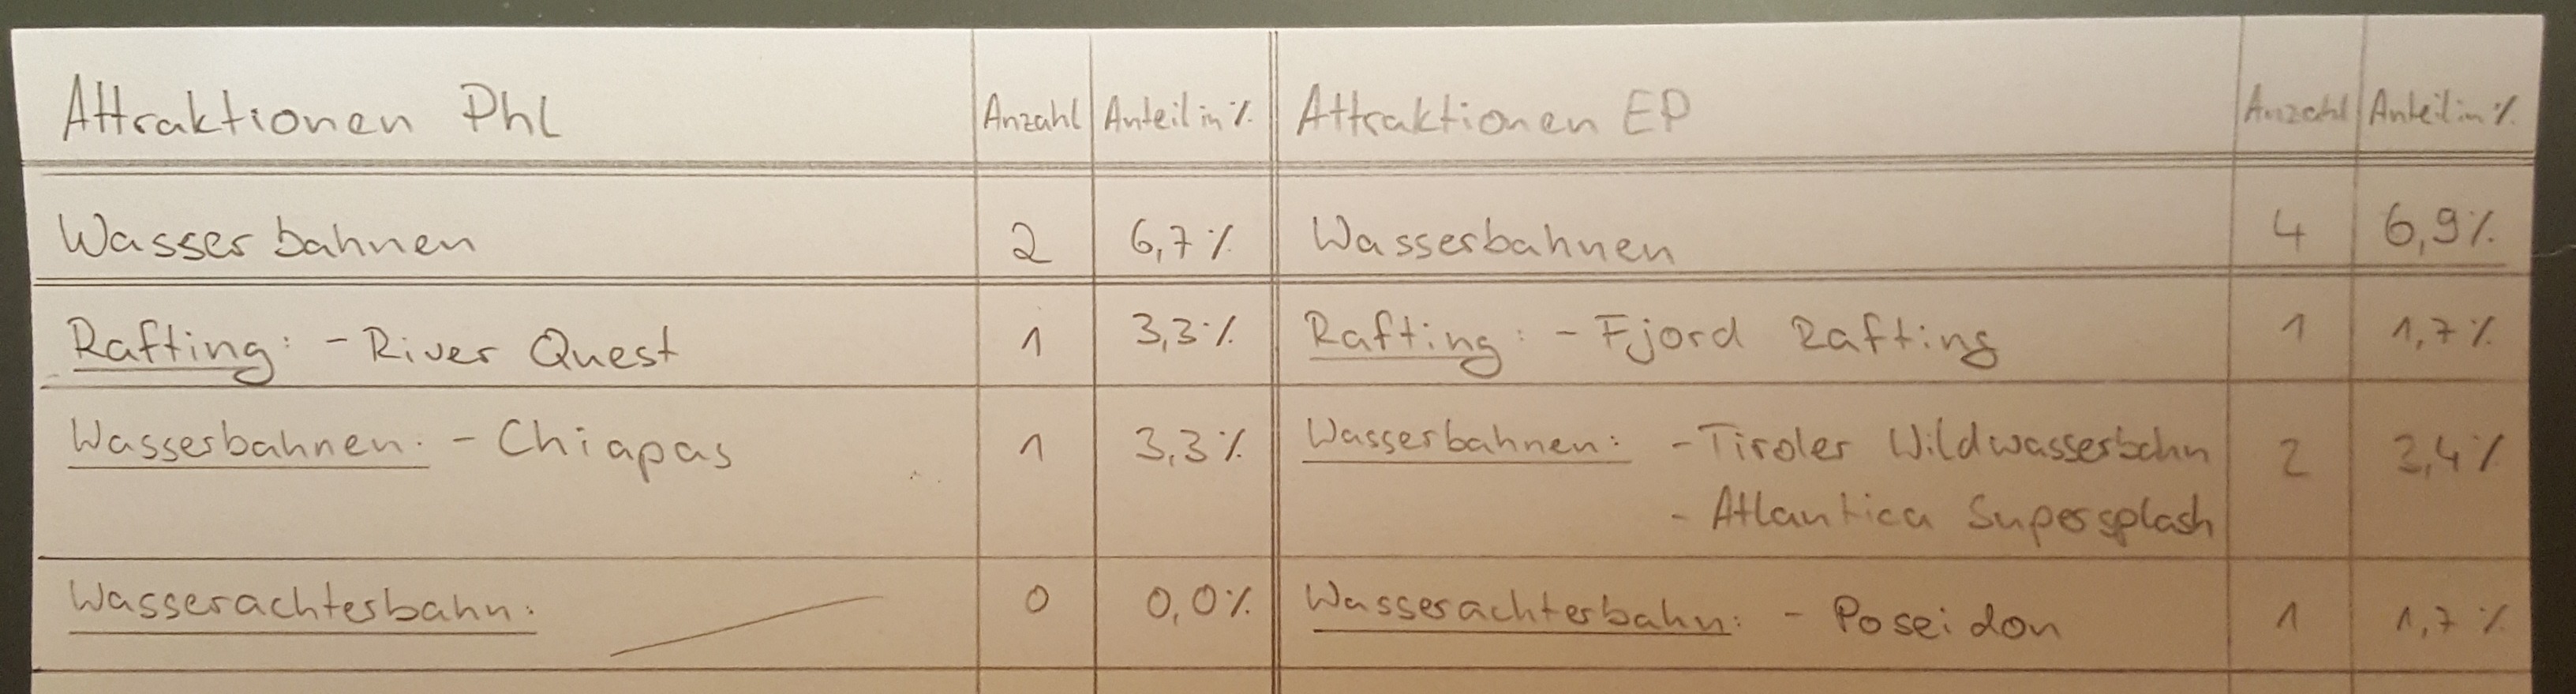 Attraktionen Phl Anzahl Anteil in % Attraktionen EP Anzahl Anteil in %
Wasserbahnen 2 6,7% Wasserbahnen 4 6,9%
Rafting: - River Quest 1 3,3% Rafting: - Fjord Rafting 1 1,7%
Wasserbahnen: - Chiapas 1 3,3% Wasserbahnen: - Tiroler Wildwasserbahn 2 3,4%
- Atlantica Supersplash
Wasserachterbahn: 0 0,0% Wasserachterbahn: - Poseidon 1 1,7%